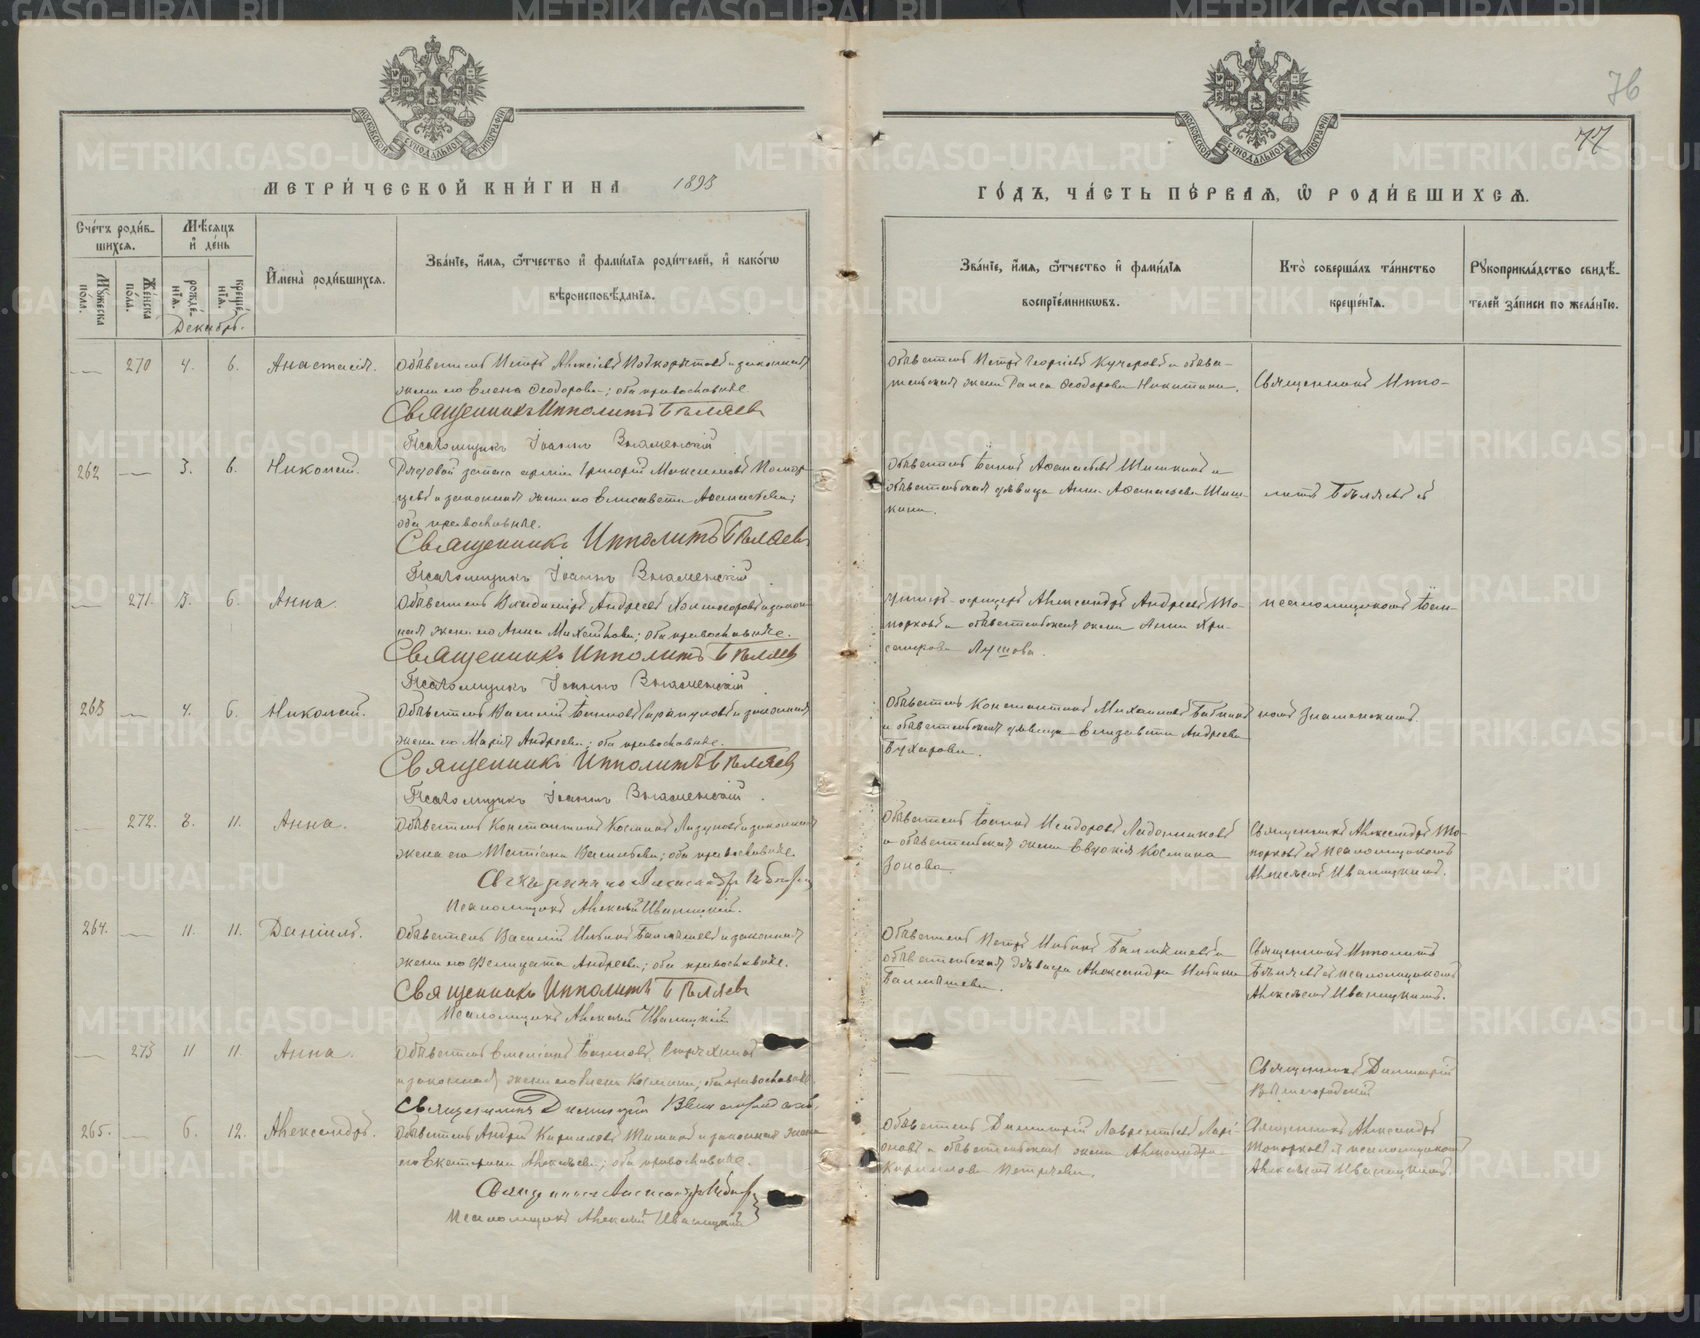 76
77
МОСКОВСКОЙ СѴНОДАЛЬНОЙ ТИПОГРАФІИ
МОСКОВСКОЙ СѴНОДАЛЬНОЙ ТИПОГРАФІИ
МЕТРИ́ЧЕСКОЙ КНИ́ГИ НА 1898
ГО́ДЪ, ЧА́СТЬ ПЕ́РВАЯ, Ѽ РОДИ́ВШИХСЯ.
Сче́тъ роди́в-
шихся.
Мѣ́сяцъ
и҆ де́нь
Му́жеска по́ла.
Же́нска по́ла.
рожде́-нїя.
креще́-нїя.
Декабрь.
И҆мена̀ роди́вшихся.
Зва́нїе, и҆́мя, ѻ҆́тчество и҆ фами́лїя роди́телей, и҆ како́гѡ
вѣроисповѣ́данїя.
Зва́нїе, и҆́мя, ѻ҆́тчество и҆ фами́лїя
воспрїе́мникѡвъ.
Кто̀ соверша́лъ та́инство
креще́нїя.
Рꙋкоприкла́дство свидѣ́-
телей за́писи по жела́нїю.
270 4. 6. Анастасія. Обыватель Петръ Алексѣевъ и законная
жена его Елена Ѳеодорова; оба православные
Священникъ Ипполитъ Бѣляевъ
Псаломщикъ Іоаннъ Знаменскій
Обыватель Петръ Георгіевъ Кучеровъ и обыва-
тельская жена Раиса Ѳеодорова Никитина.
Священникъ Иппо-
262 3. 6. Николай. Рядовой запаса арміи Григорій Максимовъ
и законная жена его Елисавета Аѳанасьева;
оба православные.
Священникъ Ипполитъ Бѣляевъ
Псаломщикъ Іоаннъ Знаменскій
Обыватель Іоаннъ Аѳанасьевъ Шишкинъ и
обывательская дѣвица Анна Аѳанасьева Шиш-
кина.
литъ Бѣляевъ съ
271. 5. 6. Анна. Обыватель Владиміръ Андреевъ и закон-
ная жена его Анна; оба православные.
Священникъ Ипполитъ Бѣляевъ
Псаломщикъ Іоаннъ Знаменскій
Унтеръ-офицеръ Александръ Андреевъ То-
порковъ и обывательская жена Анна Хри-
санфова Лушова.
псаломщикомъ Іоан-
263 4. 6. Николай. Обыватель Василій Іоанновъ Сарапуловъ и законная
жена его Марія Андреева; оба православные.
Священникъ Ипполитъ Бѣляевъ
Псаломщикъ Іоаннъ Знаменскій.
Обыватель Константинъ Михаиловъ Бабкинъ
и обывательская дѣвица Елизавета Андреева
Бухарова.
номъ Знаменскимъ.
272. 8. 11. Анна. Обыватель Константинъ Косминъ и законная
жена его Татіана Васильева; оба православные.
Священникъ Александръ
Псаломщикъ Алексѣй Иваницкій.
Обыватель Іоаннъ Исидоровъ Ладошниковъ
и обывательская жена Евдокія Космина
Зонова.
Священникъ Александръ То-
порковъ съ псаломщикомъ
Алексѣемъ Иваницкимъ.
264. 11. 11. Даніилъ. Обыватель Василій и законная
жена его Фелицата Андреева; оба православные.
Священникъ Ипполитъ Бѣляевъ
Псаломщикъ Алексѣй Иваницкій
Обыватель Петръ и
обывательская дѣвица Александра
Священникъ Ипполитъ
Бѣляевъ съ псаломщикомъ
Алексѣемъ Иваницкимъ.
273 11 11. Анна. Обыватель Іоанновъ
и законная жена его Елена Космина; оба православные.
Священникъ Димитрій
Священникъ Димитрій
265. 6. 12. Александръ. Обыватель Андрей Кирилловъ и законная жена
его Екатерина Алексѣева; оба православные.
Священникъ Александръ
Псаломщикъ Алексѣй Иваницкій
Обыватель Димитрій Лаврентьевъ Лари-
оновъ и обывательская жена Александра
Кириллова Петрьева.
Священникъ Александръ
Топорковъ съ псаломщикомъ
Алексѣемъ Иваницкимъ.
METRIKI.GASO-URAL.RU